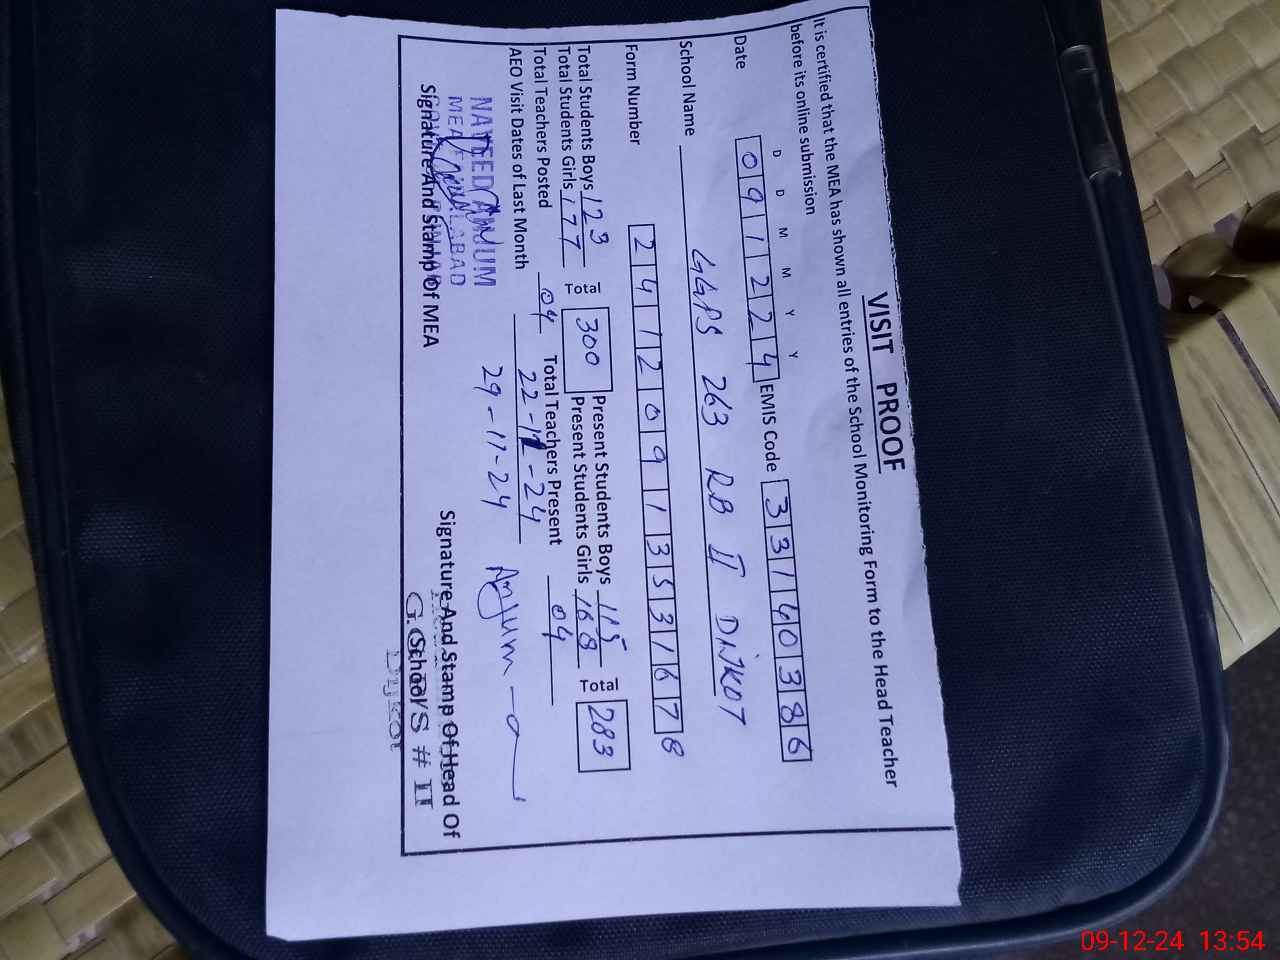 VISIT PROOF
It is certified that the MEA has shown all entries of the School Monitoring Form to the Head Teacher
before its online submission
D D M M Y Y
Date 091224 EMIS Code 33140386
School Name GGPS 263 RB II DIJKOT
Form Number 24120913531678
Total Students Boys 123 Total 300 Present Students Boys 115 Total 283
Total Students Girls 177 Present Students Girls 168
Total Teachers Posted 04 Total Teachers Present 04
AEO Visit Dates of Last Month 22-11-24
29-11-24 Anjum
NAVEED ANJUM
MEA
Signature And Stamp Of MEA
Signature And Stamp Of Head Of
School
G.G.P.S # II
Dijkot
09-12-24 13:54